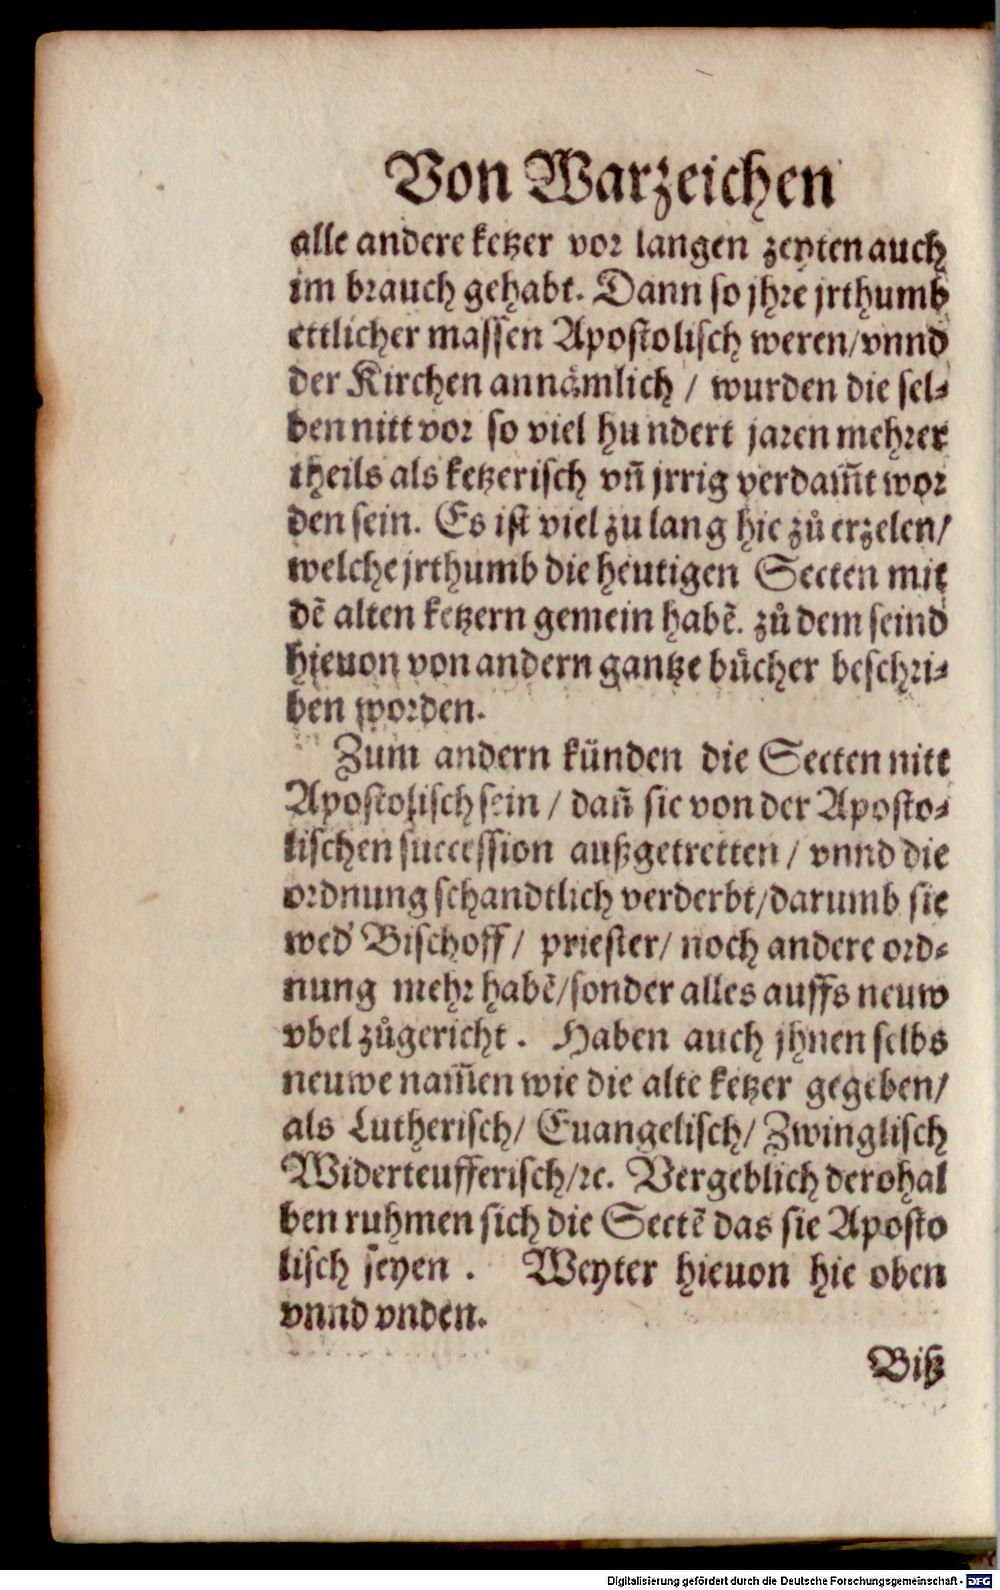 Von Warzeichen
alle andere ketzer vor langen zeyten auch
im brauch gehabt. Dann so jhre jrthumb
ettlicher massen Apostolisch weren/vnnd
der Kirchen annaͤmlich / wurden die sel⸗
ben nitt vor so viel hundert jaren mehrer
theils als ketzerisch vñ jrrig verdam̃t wor
den sein. Es ist viel zu lang hie zů erzelen/
welche jrthumb die heutigen Secten mit
dẽ alten ketzern gemein habẽ. zů dem seind
hieuon von andern gantze buͤcher beschri⸗
ben worden.
Zum andern künden die Secten nitt
Apostolisch sein / dañ sie von der Aposto⸗
lischen succession außgetretten / vnnd die
ordnung schandtlich verderbt/darumb sie
wed' Bischoff/ priester/ noch andere ord⸗
nung mehr habẽ/sonder alles auffs neuw
vbel zůgericht. Haben auch jhnen selbs
neuwe nam̃en wie die alte ketzer gegeben/
als Lutherisch/ Euangelisch/ Zwinglisch
Widerteufferisch/ꝛc. Vergeblich derohal
ben ruhmen sich die Sectẽ das sie Aposto
lisch seyen. Weyter hieuon hie oben
vnnd vnden.
Biß
Digitalisierung gefördert durch die Deutsche Forschungsgemeinschaft - DFG